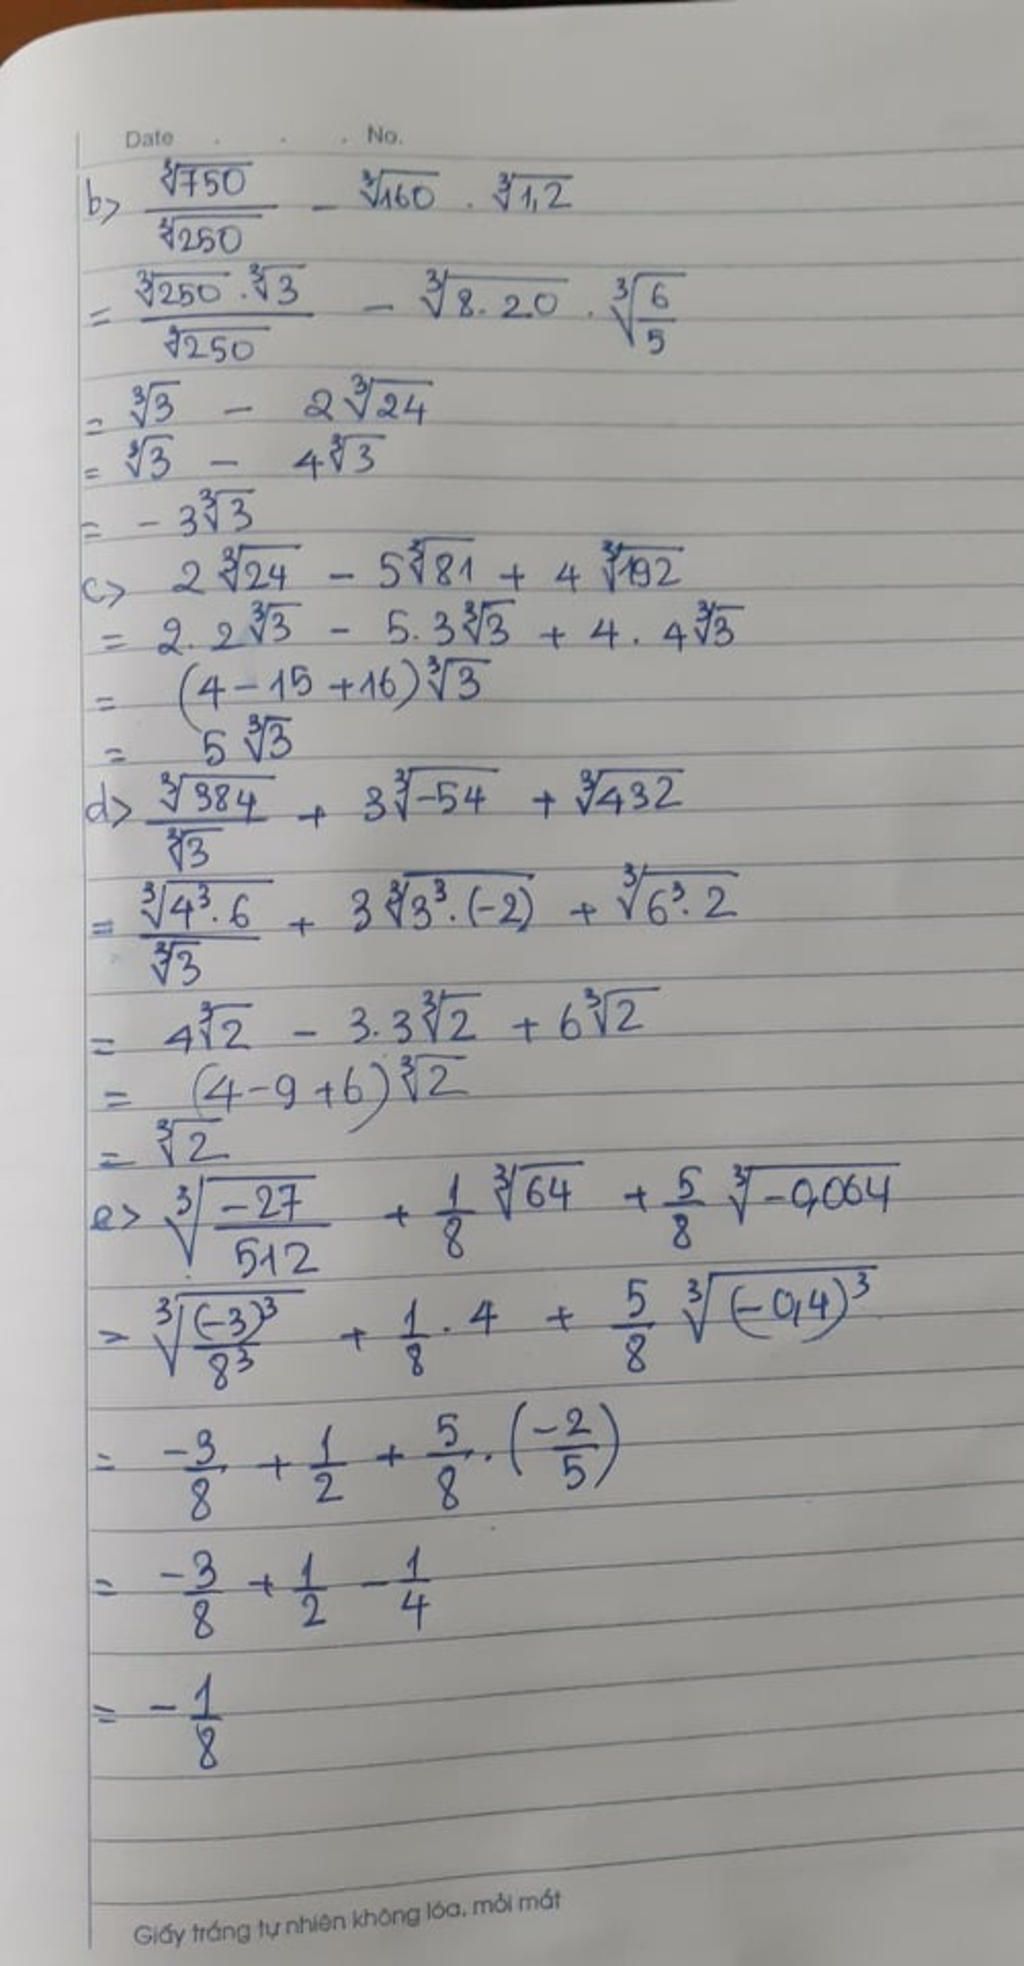 Date . . . No.
b> ∛750/∛250 - ∛160 . ∛1,2
= ∛250 . ∛3/∛250 - ∛8.20 . ∛(6/5)
= ∛3 - 2∛24
= ∛3 - 4∛3
= - 3∛3
c> 2∛24 - 5∛81 + 4∛192
= 2. 2∛3 - 5.3∛3 + 4. 4∛3
= (4-15+16)∛3
= 5∛3
d> ∛384/∛3 + 3∛-54 + ∛432
= ∛(4³.6)/∛3 + 3∛(3³.(-2)) + ∛(6³.2)
= 4∛2 - 3.3∛2 + 6∛2
= (4-9+6)∛2
= ∛2
e> ∛(-27/512) + 1/8 ∛64 + 5/8 ∛-0,064
= ∛((-3)³/8³) + 1/8 . 4 + 5/8 ∛(-0,4)³
= -3/8 + 1/2 + 5/8 . (-2/5)
= -3/8 + 1/2 - 1/4
= - 1/8
Giấy trắng tự nhiên không lóa, mỏi mắt